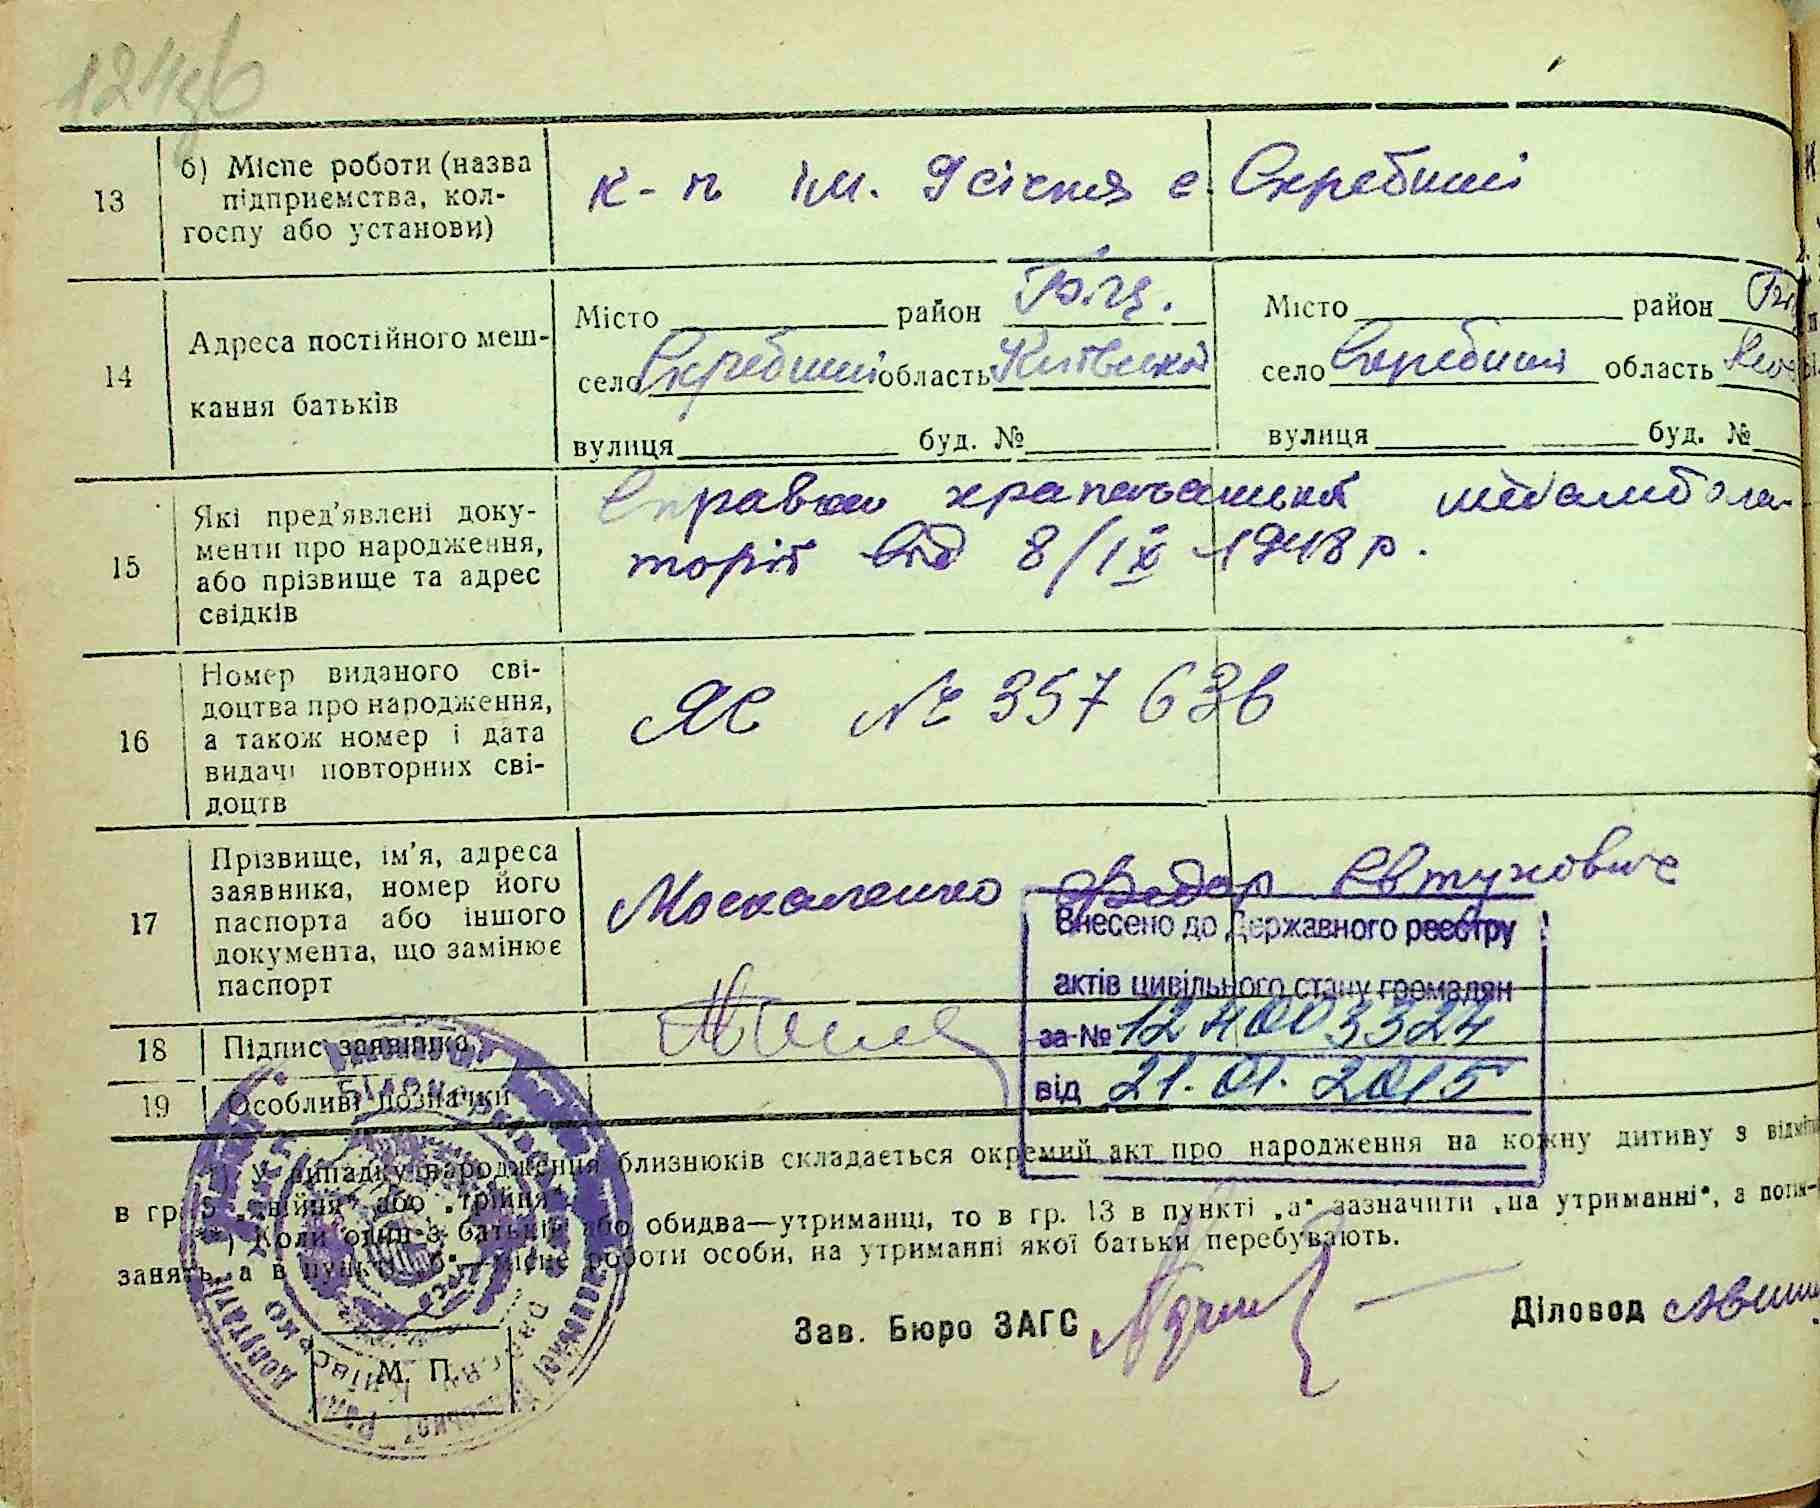 124зб
13 б) Місце роботи (назва
підприємства, кол-
госпу або установи)
к-п ім. 9 січня с. Скребиші
14 Адреса постійного меш-
кання батьків
Місто район Біл.Ц.
село Скребиші область Київська
вулиця буд. №
Місто район
село Скребиші область
вулиця буд. №
15 Які пред'явлені доку-
менти про народження,
або прізвище та адрес
свідків
Справка храпачанської медамбола-
торії від 8/IX 1948 р.
16 Номер виданого сві-
доцтва про народження,
а також номер і дата
видачі повторних сві-
доцтв
ЯЄ № 357636
17 Прізвище, ім'я, адреса
заявника, номер його
паспорта або іншого
документа, що замінює
паспорт
Москаленко Федор Євтухович
Внесено до Державного реєстру
актів цивільного стану громадян
за № 12 4003324
від 21.01.2015
18 Підпис заявника
19 Особливі позначки
*) У випадку народження близнюків складається окремий акт про народження на кожну дитину з
в гр. 5 „двійня" або „трійня".
**) Коли один з батьків або обидва—утриманці, то в гр. 13 в пункті „а" зазначити „на утриманні", а
занять, а в пункті „б"—місце роботи особи, на утриманні якої батьки перебувають.
Зав. Бюро ЗАГС
Діловод
М. П.